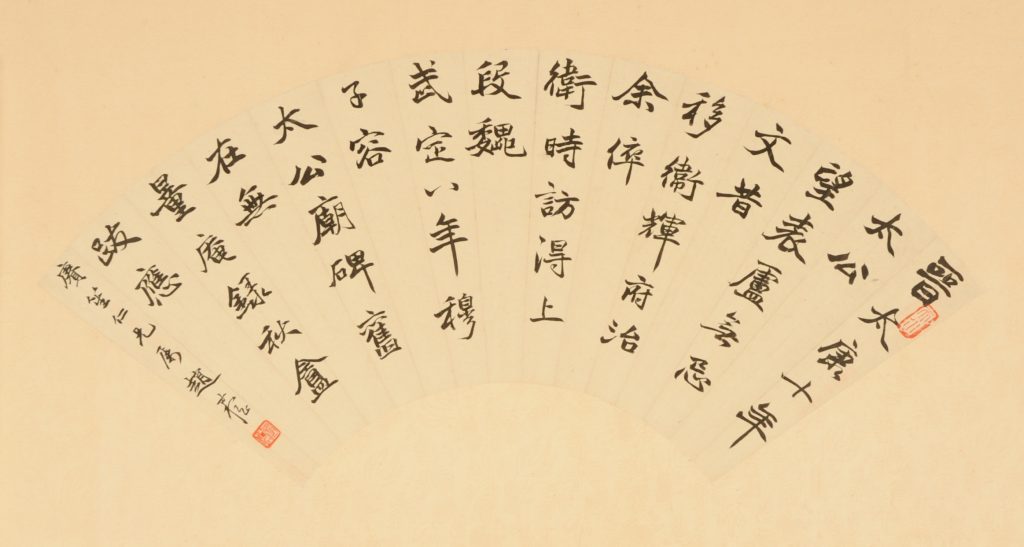 晉太康十年
太公
望表
文昔盧無忌
移衛輝府治
余倅
衛時訪得上
段魏
武定八年穆
子容
太公廟碑舊
在無
量庵錄秋盦
跋應
賡笙仁兄屬趙